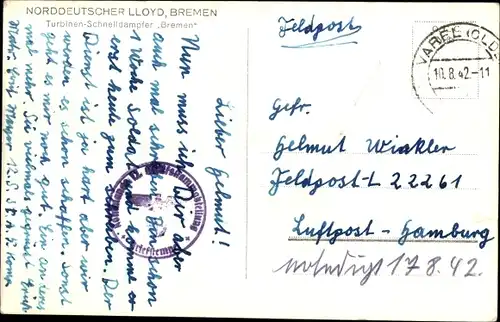 NORDDEUTSCHER LLOYD, BREMEN
Turbinen-Schnelldampfer „Bremen“
Lieber Helmut!
Nun muss ich Dir aber
auch mal schreiben. Bin schon
1 Woche Soldat und komme
erst heute zum schreiben. Der
Dienst ist ja hart aber wir
werden es schon schaffen. Sonst
geht es mir noch gut. Ein anderes
mal mehr. Sei vielmals gegrüsst
Feldpost
VAREL (OLD
10.8.42.-11
Gefr.
Helmut Winkler
Feldpost-L 22261
Luftpost-Hamburg
17.8.42.